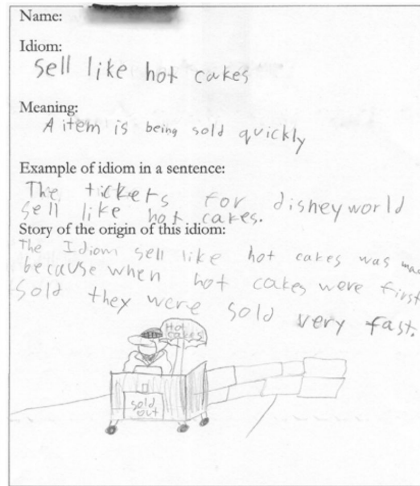 Name:
Idiom:
sell like hot cakes
Meaning:
A item is being sold quickly
Example of idiom in a sentence:
The tickets for disneyworld
sell like hot cakes.
Story of the origin of this idiom:
The Idiom sell like hot cakes was
because when hot cakes were first
sold they were sold very fast.
Hot
cakes
sold
out